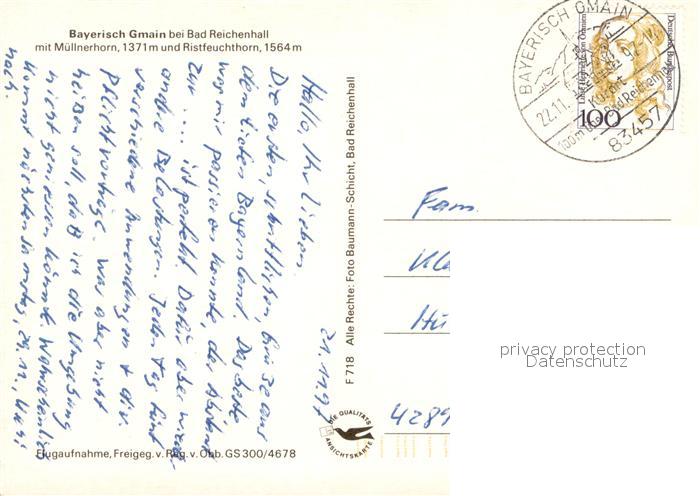 Bayerisch Gmain bei Bad Reichenhall
mit Müllnerhorn, 1371 m und Ristfeuchthorn, 1564 m
21.11.97
Hallo Ihr Lieben.
Die ersten, schriftlichen, Grüsse aus
dem tiefen Bayernland. Das beste
was mir passieren konnte, der Abstand
zur .... ist perfekt. Dafür aber wieder
andre Belastungen. Jeden Tag fünf
verschiedene Anwendungen + div.
Pflichtvorträge. Was aber nicht
heißen soll, daß ich die Umgebung
nicht geniessen könnte. Wahrscheinlich
kommt nächsten Samstag, 29.11.,
nach.
Flugaufnahme, Freigeg. v. Reg. v. Obb. GS 300/4678
F 718 Alle Rechte: Foto Baumann-Schicht, Bad Reichenhall
DIE QUALITÄTS
ANSICHTSKARTE
BAYERISCH GMAIN
22.11.
97-17
Kurort
100m über Bad Reichenhall
83457
Deutsche Bundespost
Luise Henriette von Oranien
100
Fam.
4289
privacy protection
Datenschutz